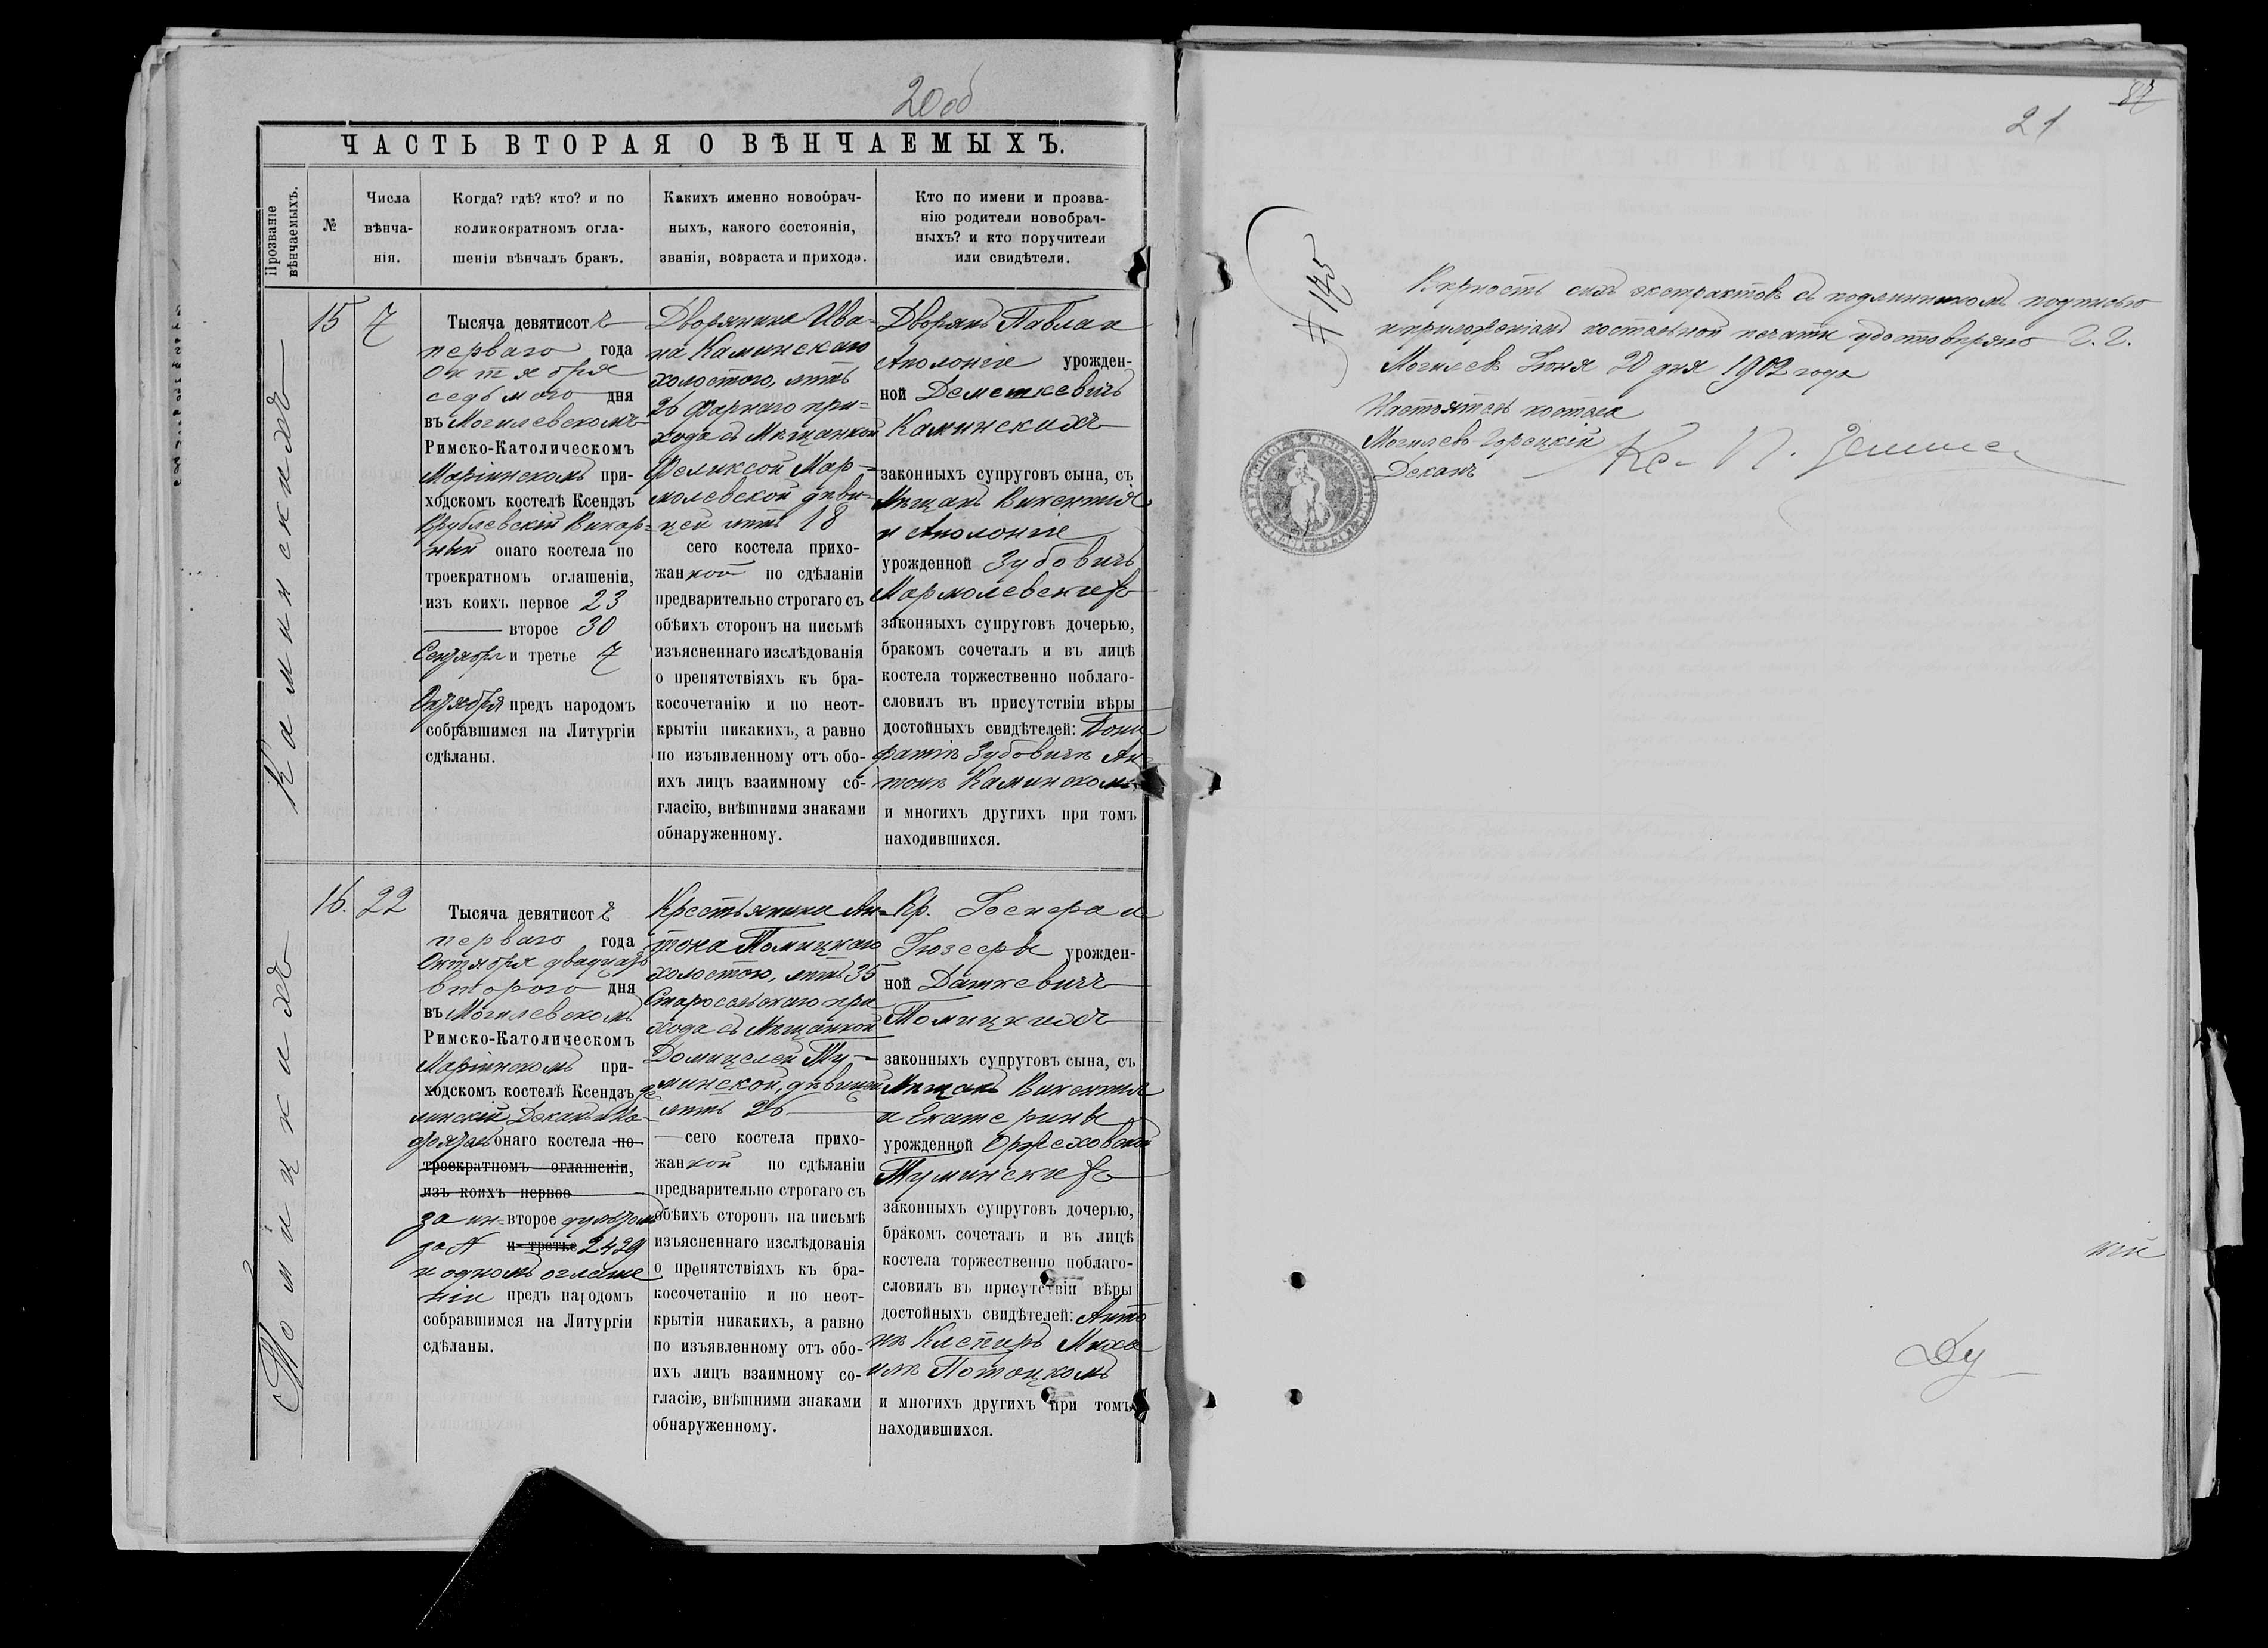 20об
ЧАСТЬ ВТОРАЯ О ВѢНЧАЕМЫХЪ.
Прозваніе вѣнчаемыхъ.
№
Числа вѣнча-нія.
Когда? гдѣ? кто? и по
коликократномъ огла-
шеніи вѣнчалъ бракъ.
Какихъ именно новобрач-
ныхъ, какого состоянія,
званія, возраста и прихода.
Кто по имени и прозва-
нію родители новобрач-
ныхъ? и кто поручители
или свидѣтели.
Каминскихъ
15
7
Тысяча девятисот
перваго года
Октября
седьмого дня
въ Могилевскомъ
Римско-Католическомъ
Маріинскомъ при-
ходскомъ костелѣ Ксендзъ
Врублевскій Викар-
ный онаго костела по
троекратномъ оглашеніи,
изъ коихъ первое 23
второе 30
Сентября и третье 7
Октября предъ народомъ
собравшимся на Литургіи
сдѣланы.
Дворянина Ива-
на Каминскаго
холостого, лѣтъ
26 Фарнаго при-
хода съ Мѣщанкой
Феликсой Мар-
молевской дѣви-
цей лѣтъ 18
сего костела прихо-
жанкой по сдѣланіи
предварительно строгаго съ
обѣихъ сторонъ на письмѣ
изъясненнаго изслѣдованія
о препятствіяхъ къ бра-
косочетанію и по неот-
крытіи никакихъ, а равно
по изъявленному отъ обо-
ихъ лицъ взаимному со-
гласію, внѣшними знаками
обнаруженному.
Дворянъ Павла и
Аполоніи урожден-
ной Деметкевичъ
Каминскихъ
законныхъ супруговъ сына, съ
Мѣщанъ Викентія
и Аполоніи
урожденной Зубовичъ
Мармолевскихъ
законныхъ супруговъ дочерью,
бракомъ сочеталъ и въ лицѣ
костела торжественно поблаго-
словилъ въ присутствіи вѣры
достойныхъ свидѣтелей: Бони
фатіѣ Зубовичѣ Ан
тонѣ Каминскомъ
и многихъ другихъ при томъ
находившихся.
16.
22
Тысяча девятисот
перваго года
Октября двадцать
второго дня
въ Могилевскомъ
Римско-Католическомъ
Маріинскомъ при-
ходскомъ костелѣ Ксендзъ
онаго костела по
троекратномъ оглашеніи,
изъ коихъ первое
за ин- второе дультомъ
за № и третье 2429
и одномъ оглаше
ніи предъ народомъ
собравшимся на Литургіи
сдѣланы.
Крестьянина Ан-
тона Томицкаго
холостого, лѣтъ 35
Старосельскаго при
хода съ Мѣщанкой
Домицелей Ту-
минской, дѣвицей
лѣтъ 26
сего костела прихо-
жанкой по сдѣланіи
предварительно строгаго съ
обѣихъ сторонъ на письмѣ
изъясненнаго изслѣдованія
о препятствіяхъ къ бра-
косочетанію и по неот-
крытіи никакихъ, а равно
по изъявленному отъ обо-
ихъ лицъ взаимному со-
гласію, внѣшними знаками
обнаруженному.
Кр. и
Іозефы урожден-
ной Даткевичъ
Томицкихъ
законныхъ супруговъ сына, съ
Мѣщанъ Викентія
и Екатерины
урожденной Оржеховской
Туминскихъ
законныхъ супруговъ дочерью,
бракомъ сочеталъ и въ лицѣ
костела торжественно поблаго-
словилъ въ присутствіи вѣры
достойныхъ свидѣтелей: Анто
нѣ Михаилѣ Потоцкомъ
и многихъ других при томъ
находившихся.
21
№ 145
Вѣрность сихъ экстрактовъ съ подлинникомъ подписью
и приложеніемъ костельной печати удостовѣряю Г. Г.
Могилевъ Іюня 20 дня 1902 года
Настоятель костела
Могилево-Горецкій
Деканъ